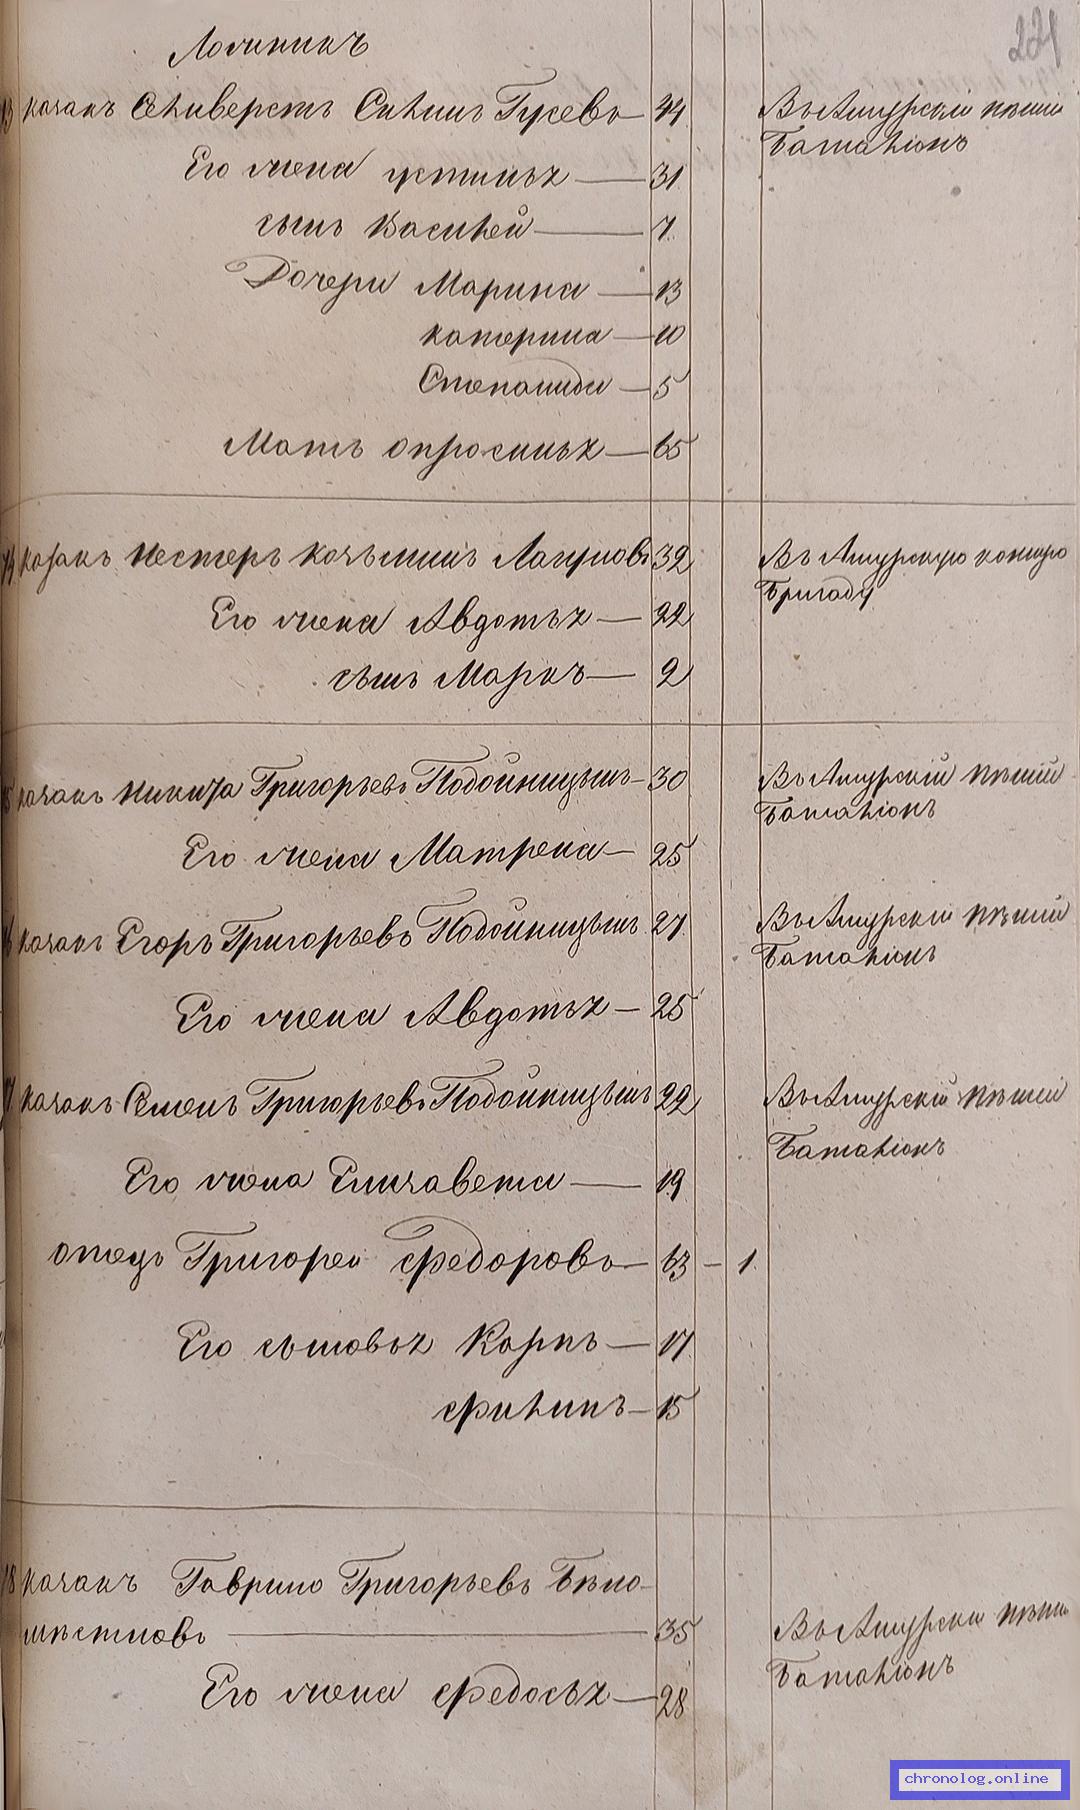 221
13 казакъ Селиверстъ Силинъ Гусевъ — 44 Въ Амурскій пѣшій
баталіонъ
Его жена устинья — 31
сынъ Василей — 7
Дочери Марина — 13
катерина — 10
Степанида — 5
Мать опросинья — 65
14 казакъ Нестеръ козьминъ 32 Въ Амурскую конную
бригаду
Его жена Авдотья — 22
сынъ Маркъ — 2
15 казакъ Никита Григорьевъ Подойницынъ — 30 Въ Амурскій пѣшій
баталіонъ
Его жена Матрена — 25
16 казакъ Егоръ Григорьевъ Подойницынъ 27 Въ Амурскій пѣшій
баталіонъ
Его жена Авдотья — 25
17 казакъ Семенъ Григорьевъ Подойницынъ 22 Въ Амурскій пѣшій
Баталіонъ
Его жена Елизавета — 19
отецъ Григорей Федоровъ — 63 — 1
Его сыновья Карпъ — 17
Филипъ — 15
18 казакъ Гаврило Григорьевъ Бѣло-
шѣстновъ — 35 Въ Амурски пѣши
баталіонъ
Его жена Федосья — 28
chronolog.online